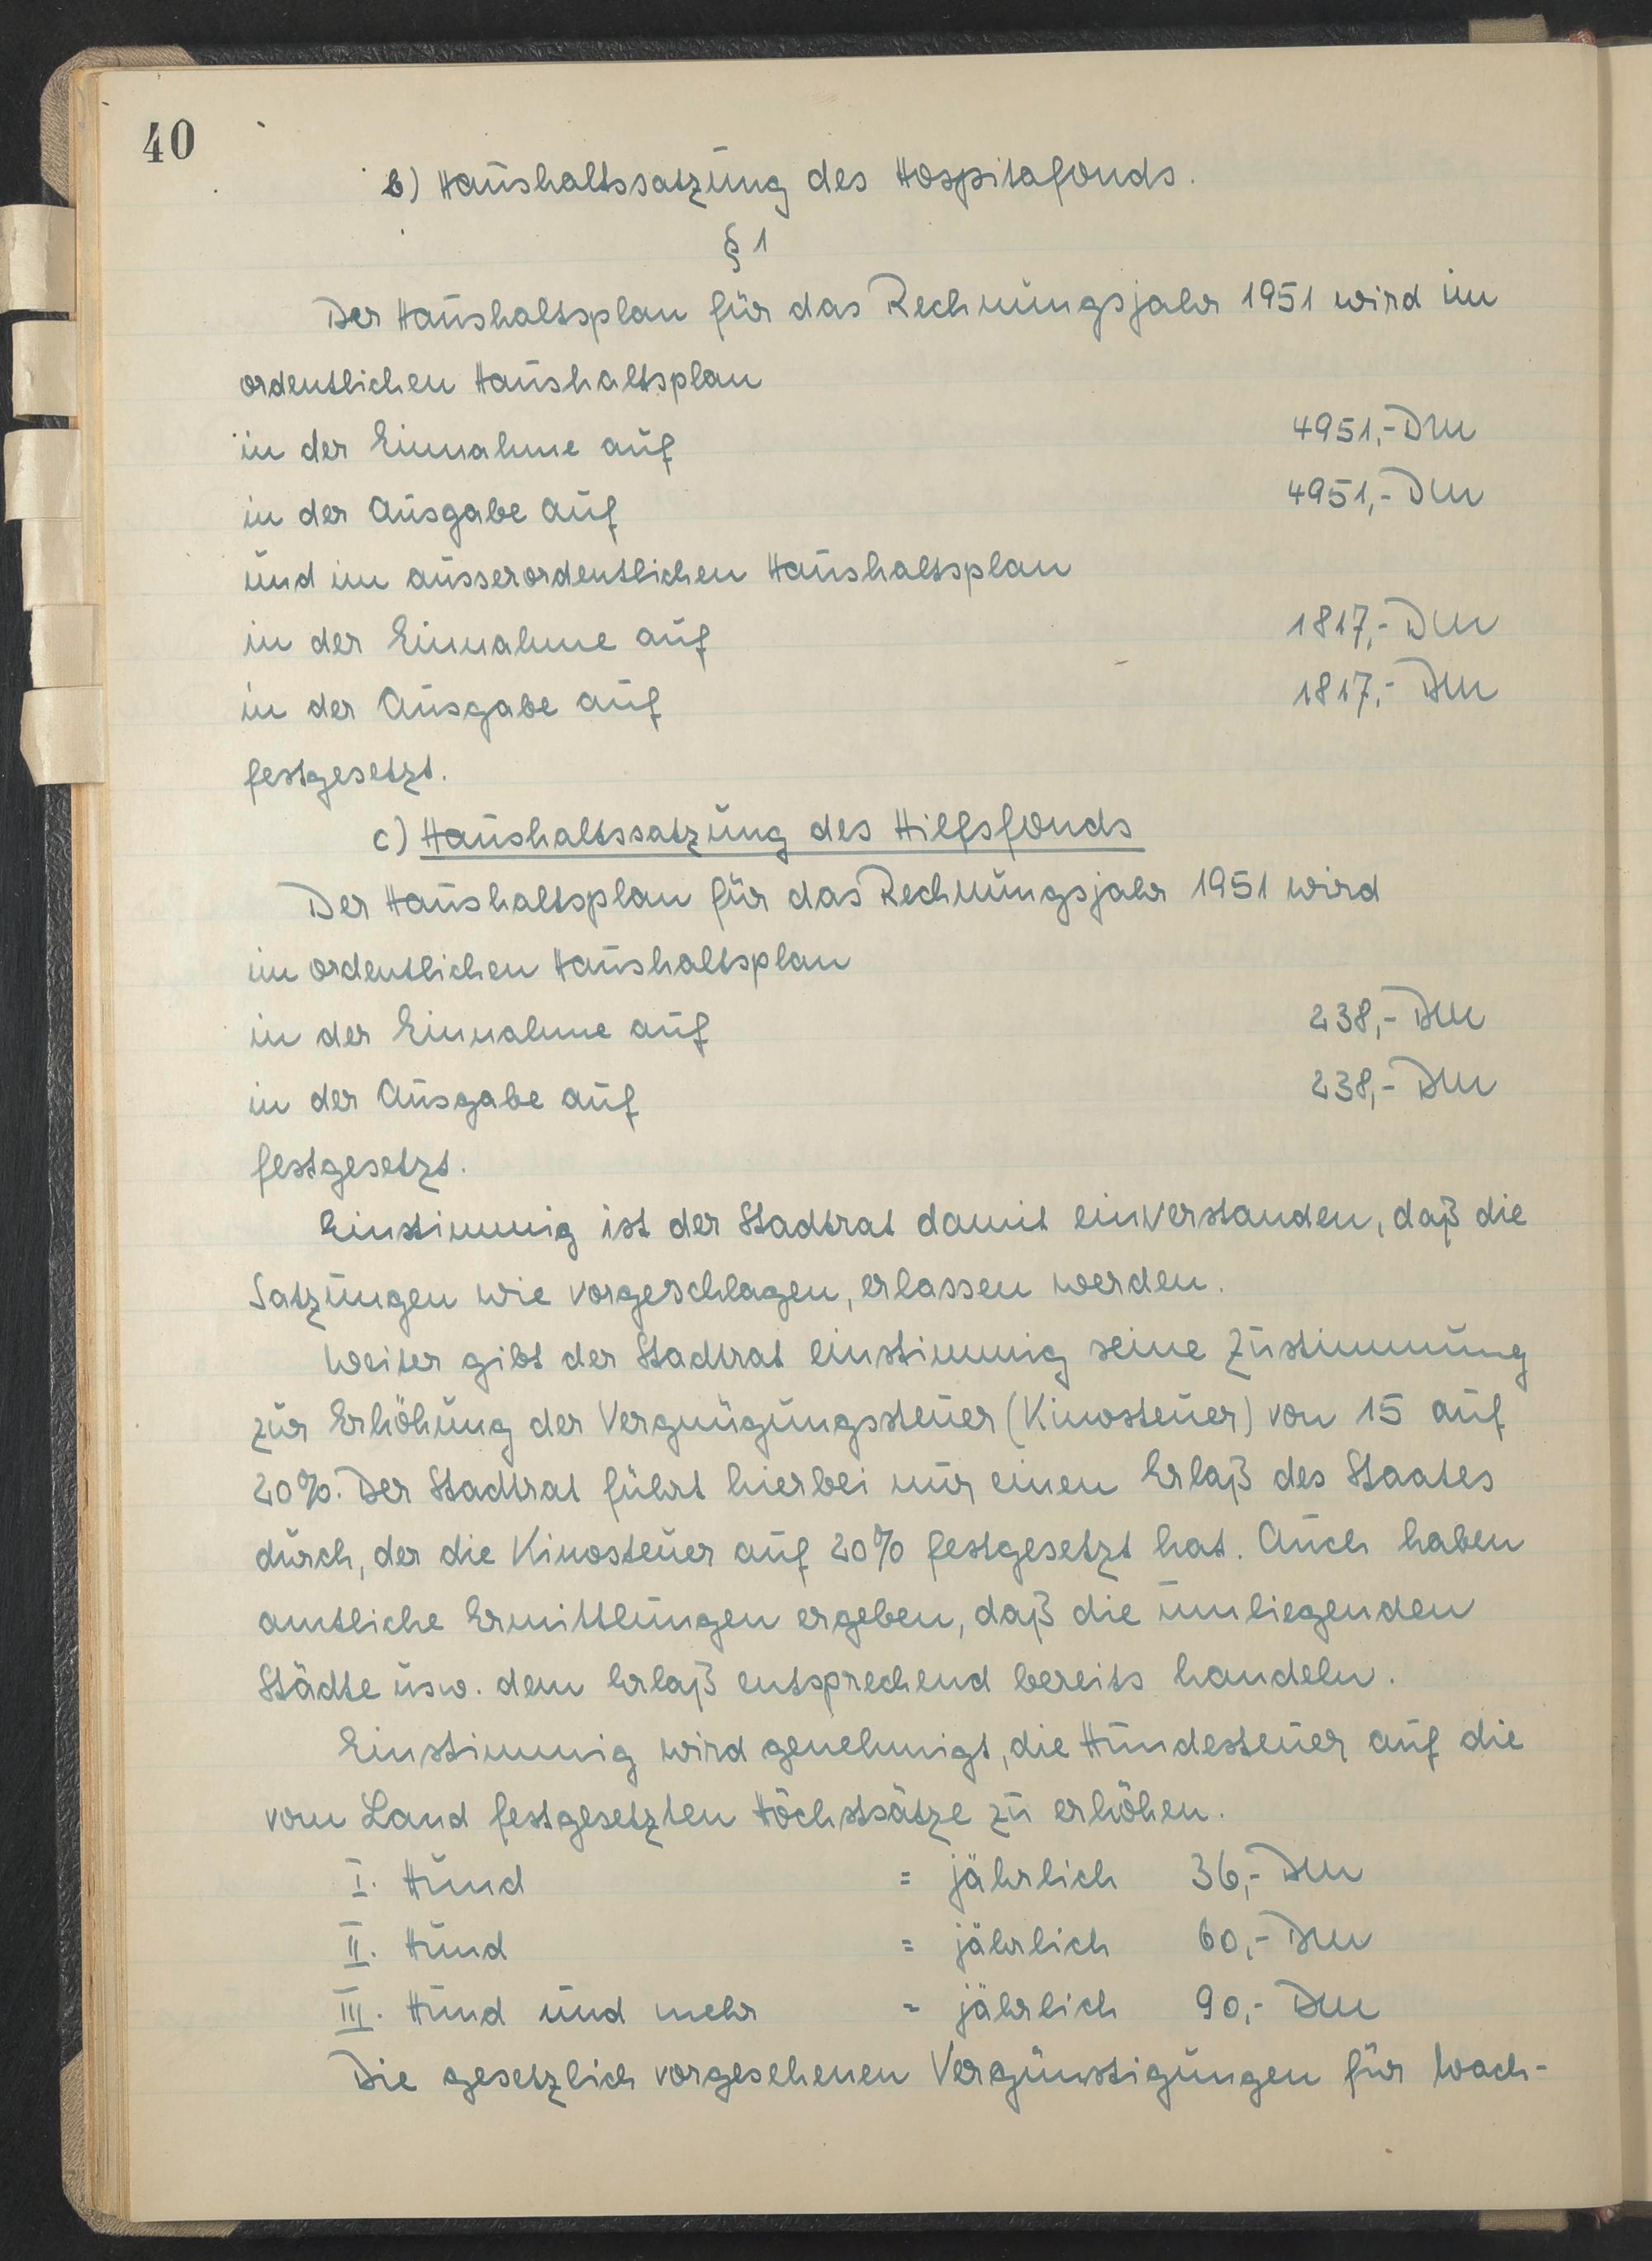 40
b) Haushaltssatzung des Hospitafonds.
§ 1
Der Haushaltsplan für das Rechnungsjahr 1951 wird im
ordentlichen Haushaltsplan
in der Einnahme auf 4951,- DM
in der Ausgabe auf 4951,- DM
und im ausserordentlichen Haushaltsplan
in der Einnahme auf 1817,- DM
in der Ausgabe auf 1817,- DM
festgesetzt.
c) Haushaltssatzung des Hilfsfonds
Der Haushaltsplan für das Rechnungsjahr 1951 wird
im ordentlichen Haushaltsplan
in der Einnahme auf 238,- DM
in der Ausgabe auf 238,- DM
festgesetzt.
Einstimmig ist der Stadtrat damit einverstanden, daß die
Satzungen wie vorgeschlagen, erlassen werden.
Weiter gibt der Stadtrat einstimmig seine Zustimmung
zur Erhöhung der Vergnügungssteuer (Kinosteuer) von 15 auf
20%. Der Stadtrat führt hierbei nur einen Erlaß des Staates
durch, der die Kinosteuer auf 20% festgesetzt hat. Auch haben
amtliche Ermittlungen ergeben, daß die umliegenden
Städte usw. dem Erlaß entsprechend bereits handeln.
Einstimmig wird genehmigt, die Hundesteuer auf die
vom Land festgesetzten Höchstsätze zu erhöhen.
I. Hund = jährlich 36,- DM
II. Hund = jährlich 60,- DM
III. Hund und mehr = jährlich 90,- DM
Die gesetzlich vorgesehenen Vergünstigungen für Wach-